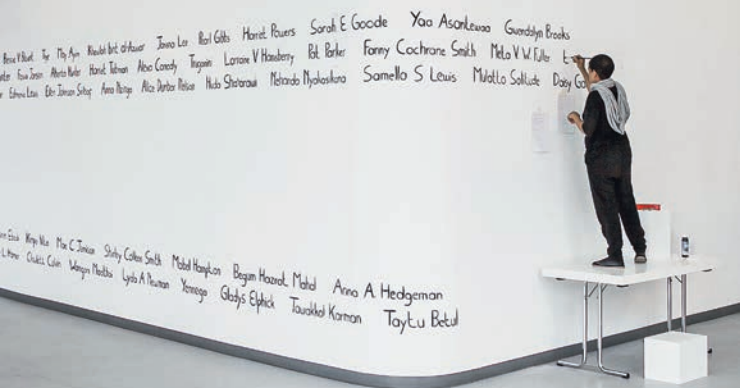 May Ayim Khawlah bint al-Azwar Pearl Gibbs Harriet Powers Sarah E Goode Yaa Asantewaa Gwendolyn Brooks
Fasia Jansen Alberta Hunter Harriet Tubman Alexa Canady Truganini Lorraine V Hansberry Pat Parker Fanny Cochrane Smith Meta V. W. Fuller E
Edmonia Lewis Ellen Johnson Sirleaf Anna Nzinga Alice Dunbar Nelson Huda Shaarawi Nehanda Nyakasikana Samella S Lewis Mulatto Solitude Daisy Ga
Mae C Jemison Mabel Hampton Begum Hazrat Mahal Anna A Hedgeman
Claudette Colvin Wangari Maathai Lyda A Newman Yennega Gladys Elphick Tawakkol Karman Taytu Betul